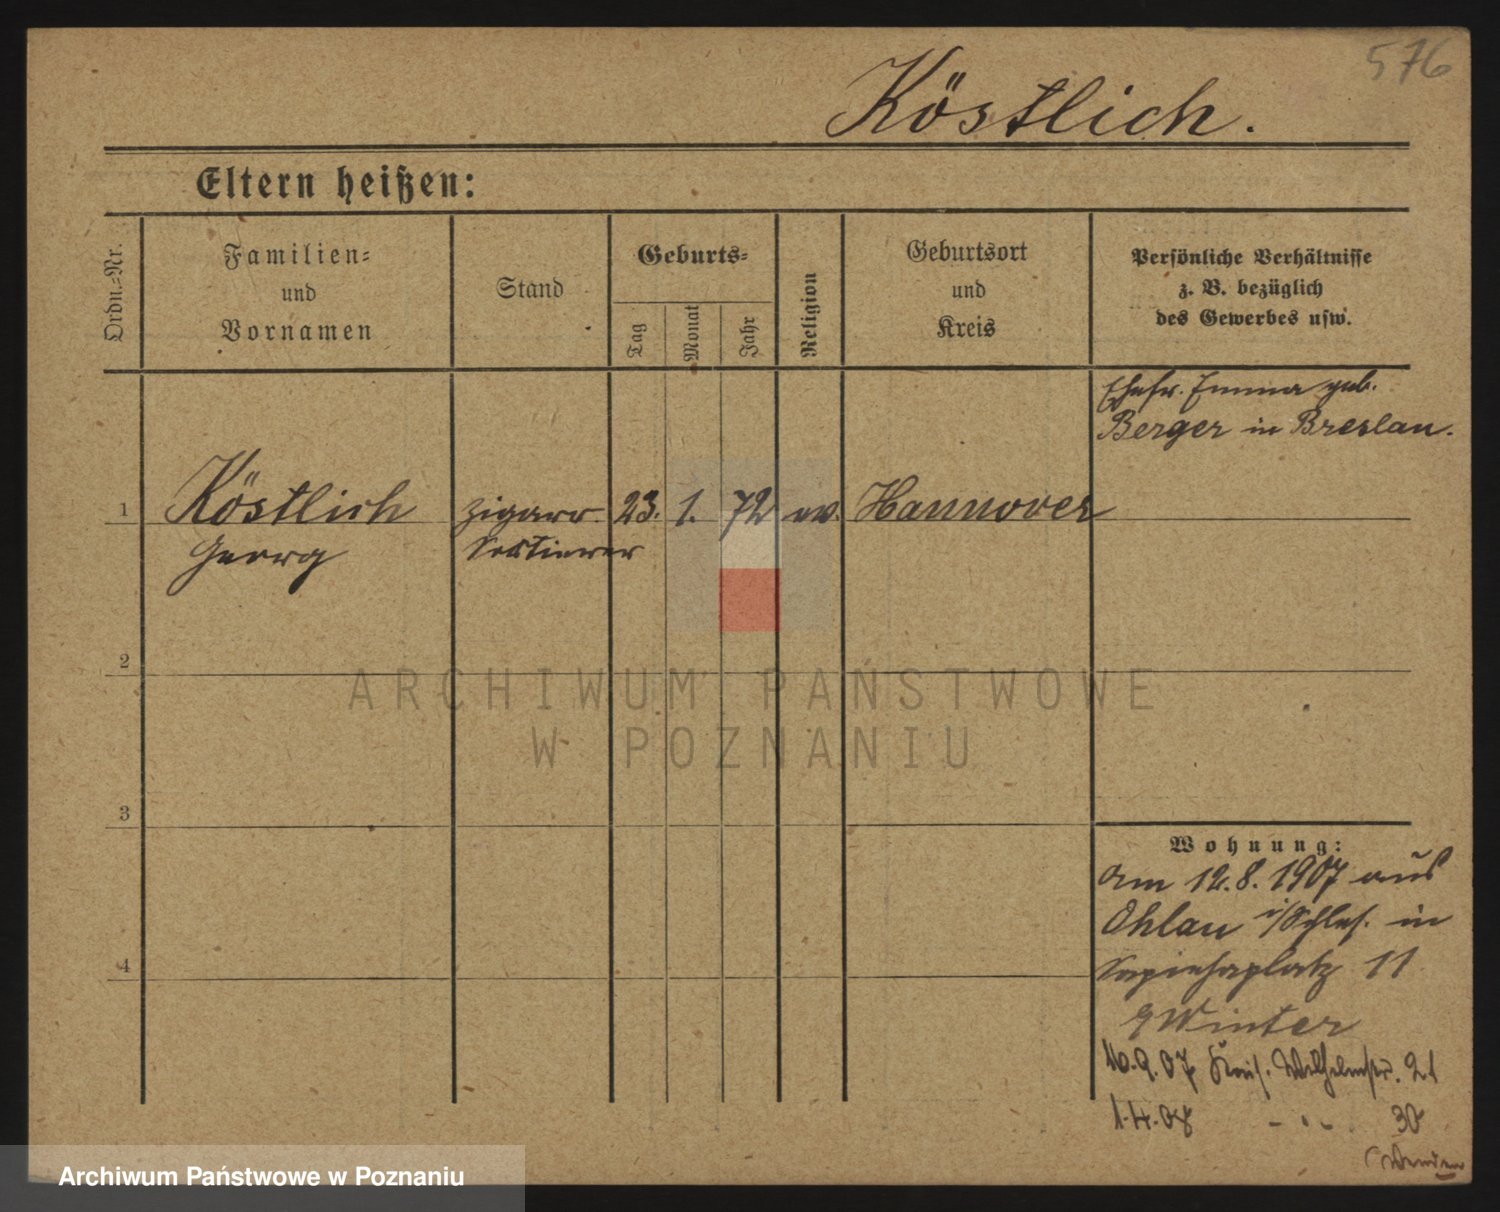 576
Köstlich.
Eltern heißen:
Ordn.-Nr.
Familien-
und
Vornamen
Stand
Geburts-
Tag
Monat
Jahr
Religion
Geburtsort
und
Kreis
Persönliche Verhältnisse
z. B. bezüglich
des Gewerbes usw.
Ehefr. Emma geb.
Berger in Breslau.
1 Köstlich Zigarr. 23. 1. 72 ev. Hannover
Georg Sortierer
2
3
4
Wohnung:
am 12.8.1907 aus
Ohlau i/Schles. in
Sapiehaplatz 11
Winter
10.9.07 Kais. Wilhelmstr. 21
1.4.08 - " - 30
Wenden
ARCHIWUM PAŃSTWOWE
W POZNANIU
Archiwum Państwowe w Poznaniu